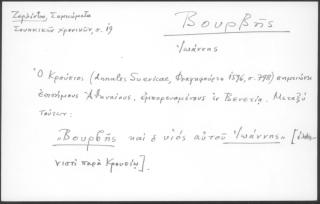 Ζερλέντου, Σημειώματα
Σουηκικῶν χρονικῶν, σ. 19
Βουρβῆς
Ἰωάννης
Ὁ Κρούσιος (Annales Suevicae, Φραγκφούρτη 1596, σ. 798) σημειώνει
ἐπισήμους Ἀθηναίους, ἐμπορευομένους ἐν Βενετίᾳ. Μεταξὺ
τούτων:
„Βουρβῆς καὶ ὁ υἱὸς αὐτοῦ Ἰωάννης" [ἑλλη-
νιστὶ παρὰ Κρουσίῳ].